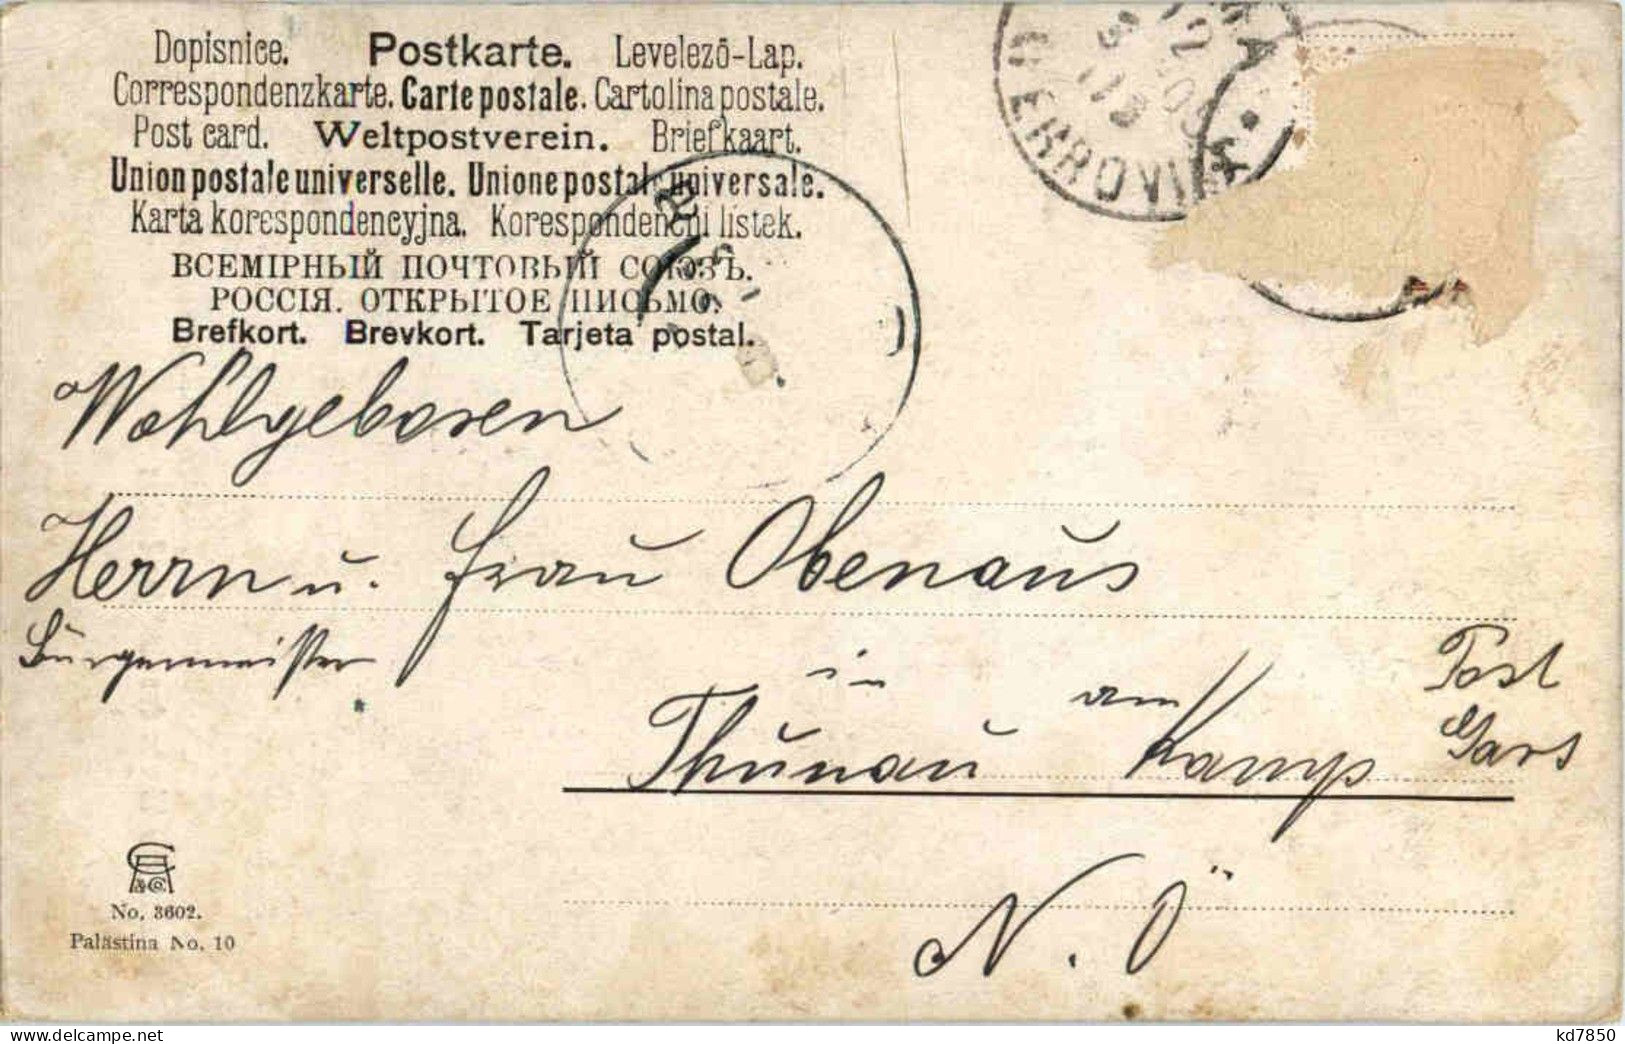 Dopisnice. Postkarte. Levelezō-Lap.
Correspondenzkarte. Carte postale. Cartolina postale.
Post card. Weltpostverein. Briefkaart.
Union postale universelle. Unione postale universale.
Karta korespondencyjna. Korespondenční lístek.
ВСЕМІРНЫЙ ПОЧТОВЫЙ СОЮЗЪ.
РОССІЯ. ОТКРЫТОЕ ПИСЬМО.
Brefkort. Brevkort. Tarjeta postal.
Wohlgeboren
Herrn u. Frau Obenaus
Bürgermeister
in
Thunau am Kamp
Post
Gars
N. Ö
&Co
No. 3602.
Palästina No. 10
kd7850